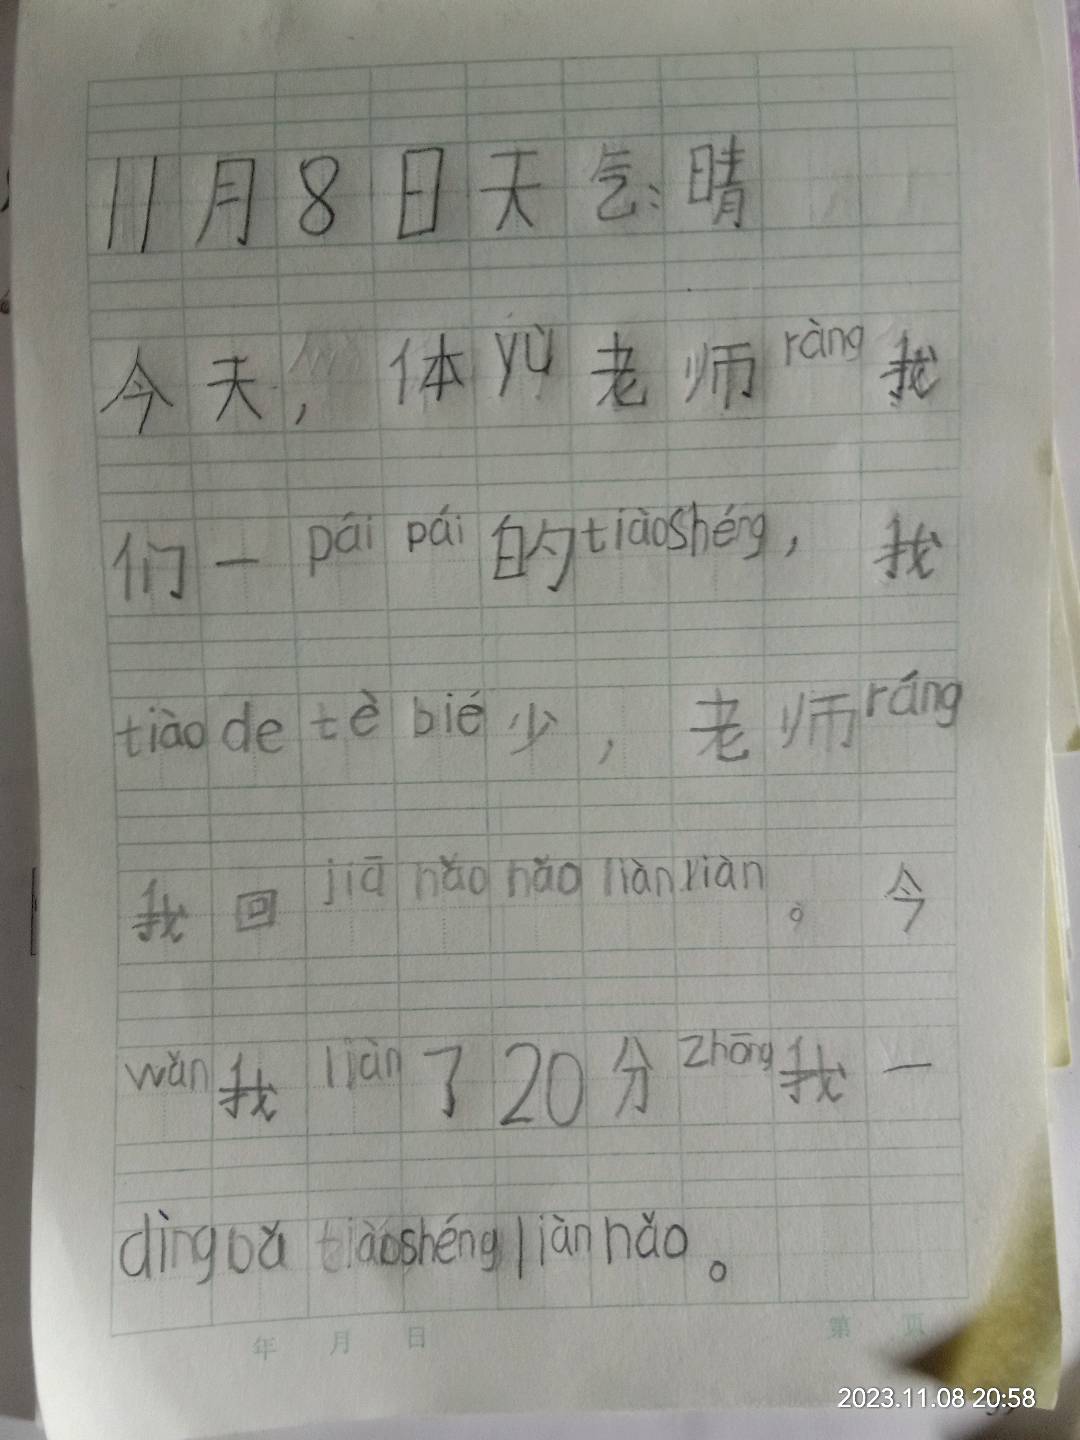 11月8日天气:晴
今天,体yù老师ràng我
们一pái pái的tiàoshéng,我
tiào de tè bié少,老师ráng
我回jiā hǎo hǎo liàn xiàn。今
wǎn我liàn了20分zhōng我一
dìng bǎ tiàoshéng liàn hǎo。
年 月 日 第 页
2023.11.08 20:58